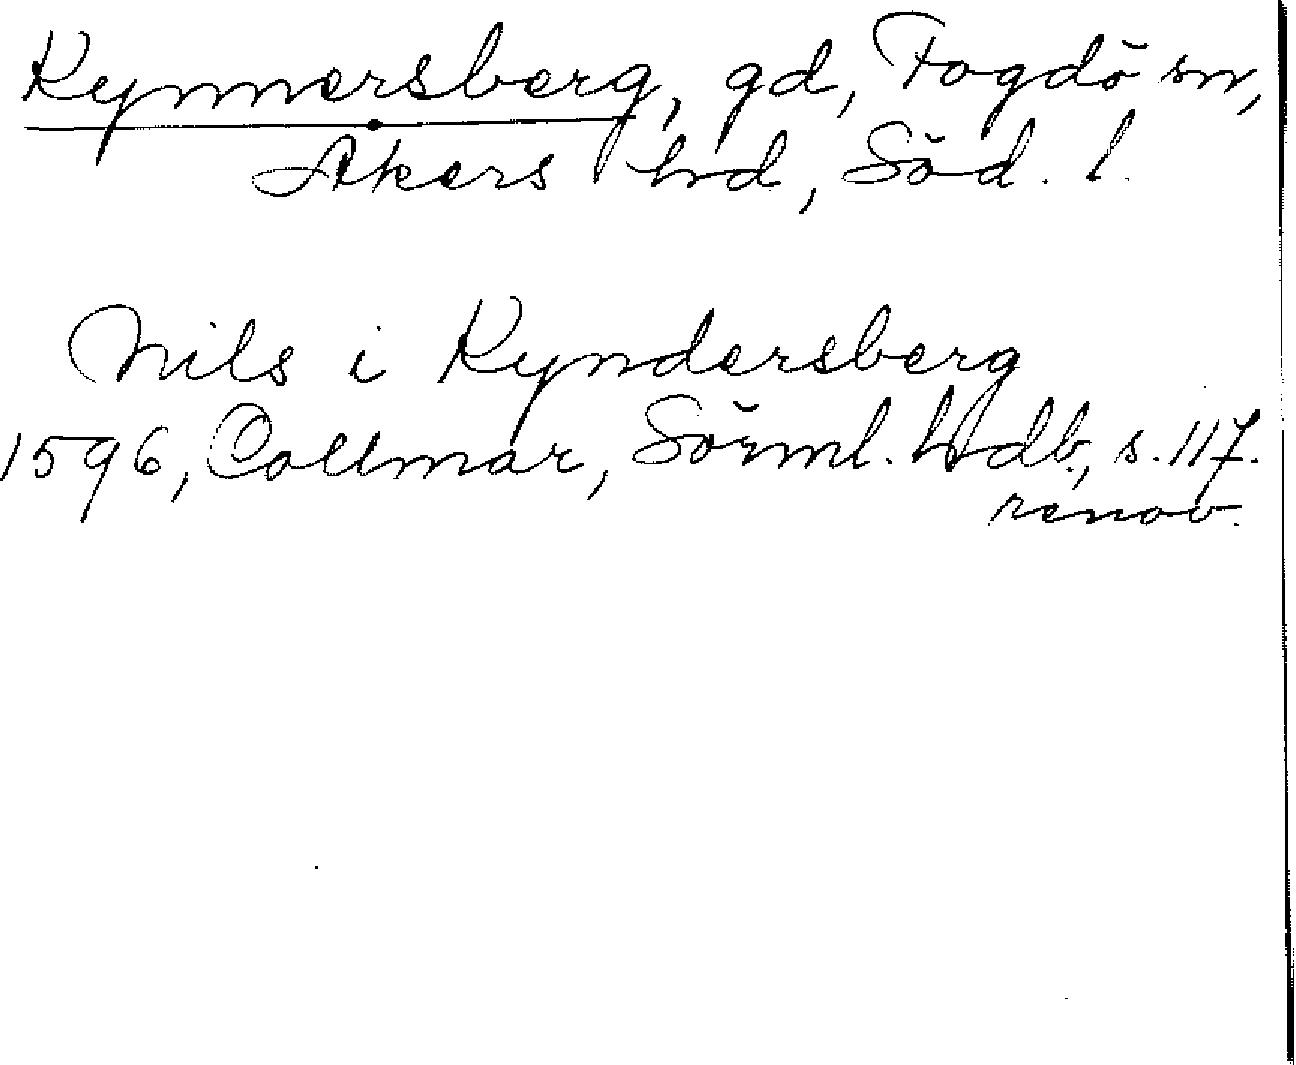 Kynnersberg, gd, Fogdö sn,
Åkers hd, Söd. l.
Nils i Kyndersberg
1596, Collmar, Sörml. hdb, s. 117.
renov.